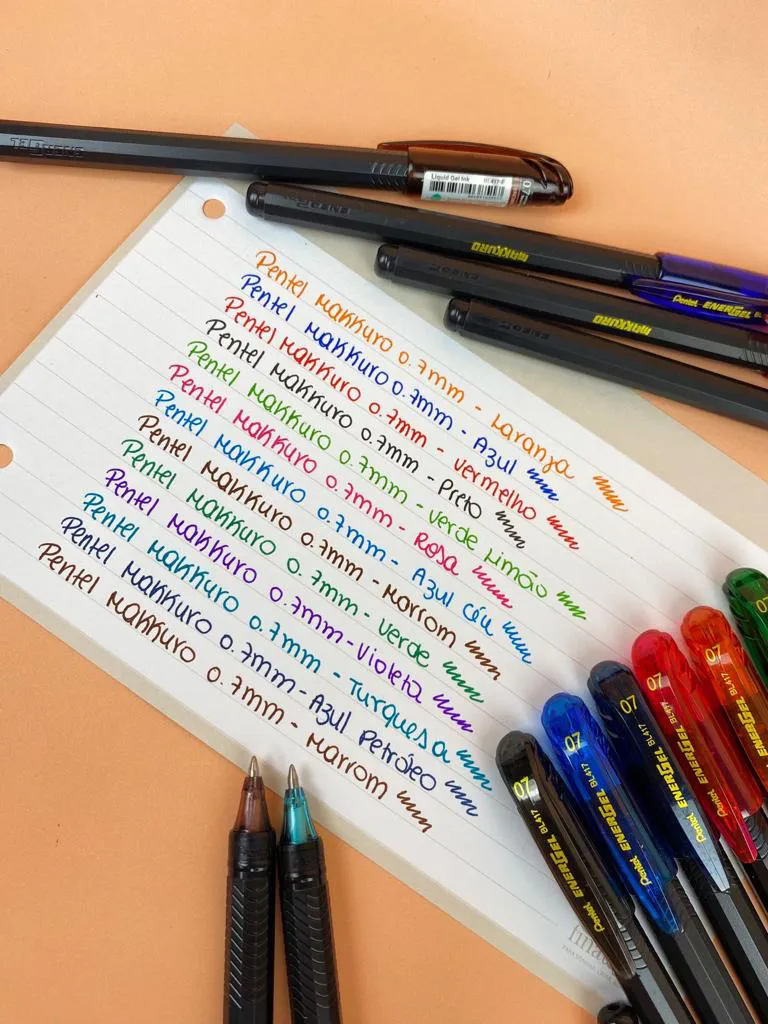 PENTEL
Liquid Gel Ink
07
MAKKURO
Pentel ENERGEL
MAKKURO
Pentel Makkuro 0.7mm - Laranja
Pentel Makkuro 0.7mm - Azul
Pentel Makkuro 0.7mm - Vermelho
Pentel Makkuro 0.7mm - Preto
Pentel Makkuro 0.7mm - Verde Limão
Pentel Makkuro 0.7mm - Rosa
Pentel Makkuro 0.7mm - Azul Céu
Pentel Makkuro 0.7mm - Marrom
Pentel Makkuro 0.7mm - Verde
Pentel Makkuro 0.7mm - Violeta
Pentel Makkuro 0.7mm - Turquesa
Pentel Makkuro 0.7mm - Azul Petróleo
Pentel Makkuro 0.7mm - Marrom
07
07 BL417 ENERGEL
07 BL417 ENERGEL Pentel
07 BL417 ENERGEL Pentel
07 BL417 ENERGEL Pentel
07 BL417 ENERGEL Pentel